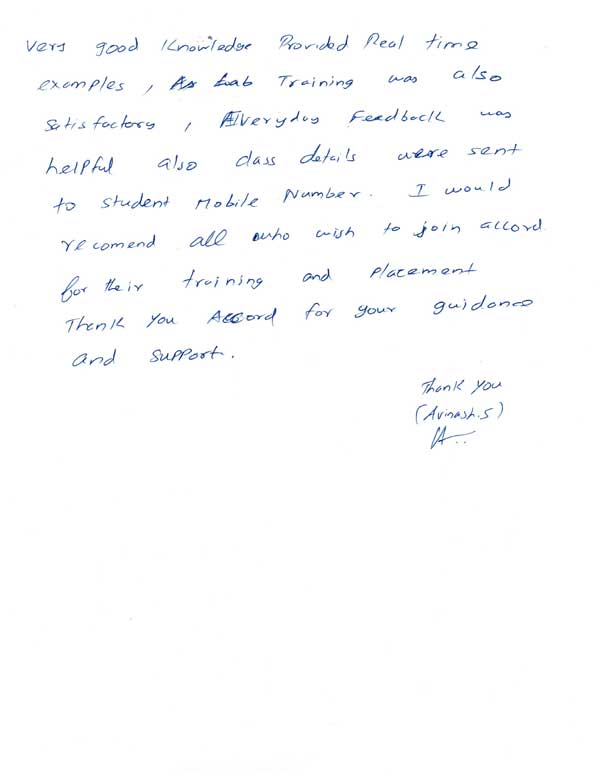 Very good Knowledge Provided Real time
examples, As Lab Training was also
satisfactory, Everyday Feedback was
helpful also class details were sent
to student Mobile Number. I would
recomend all who wish to join accord
for their training and Placement
Thank You Accord for your guidance
and support.
Thank You
(Avinash.S)